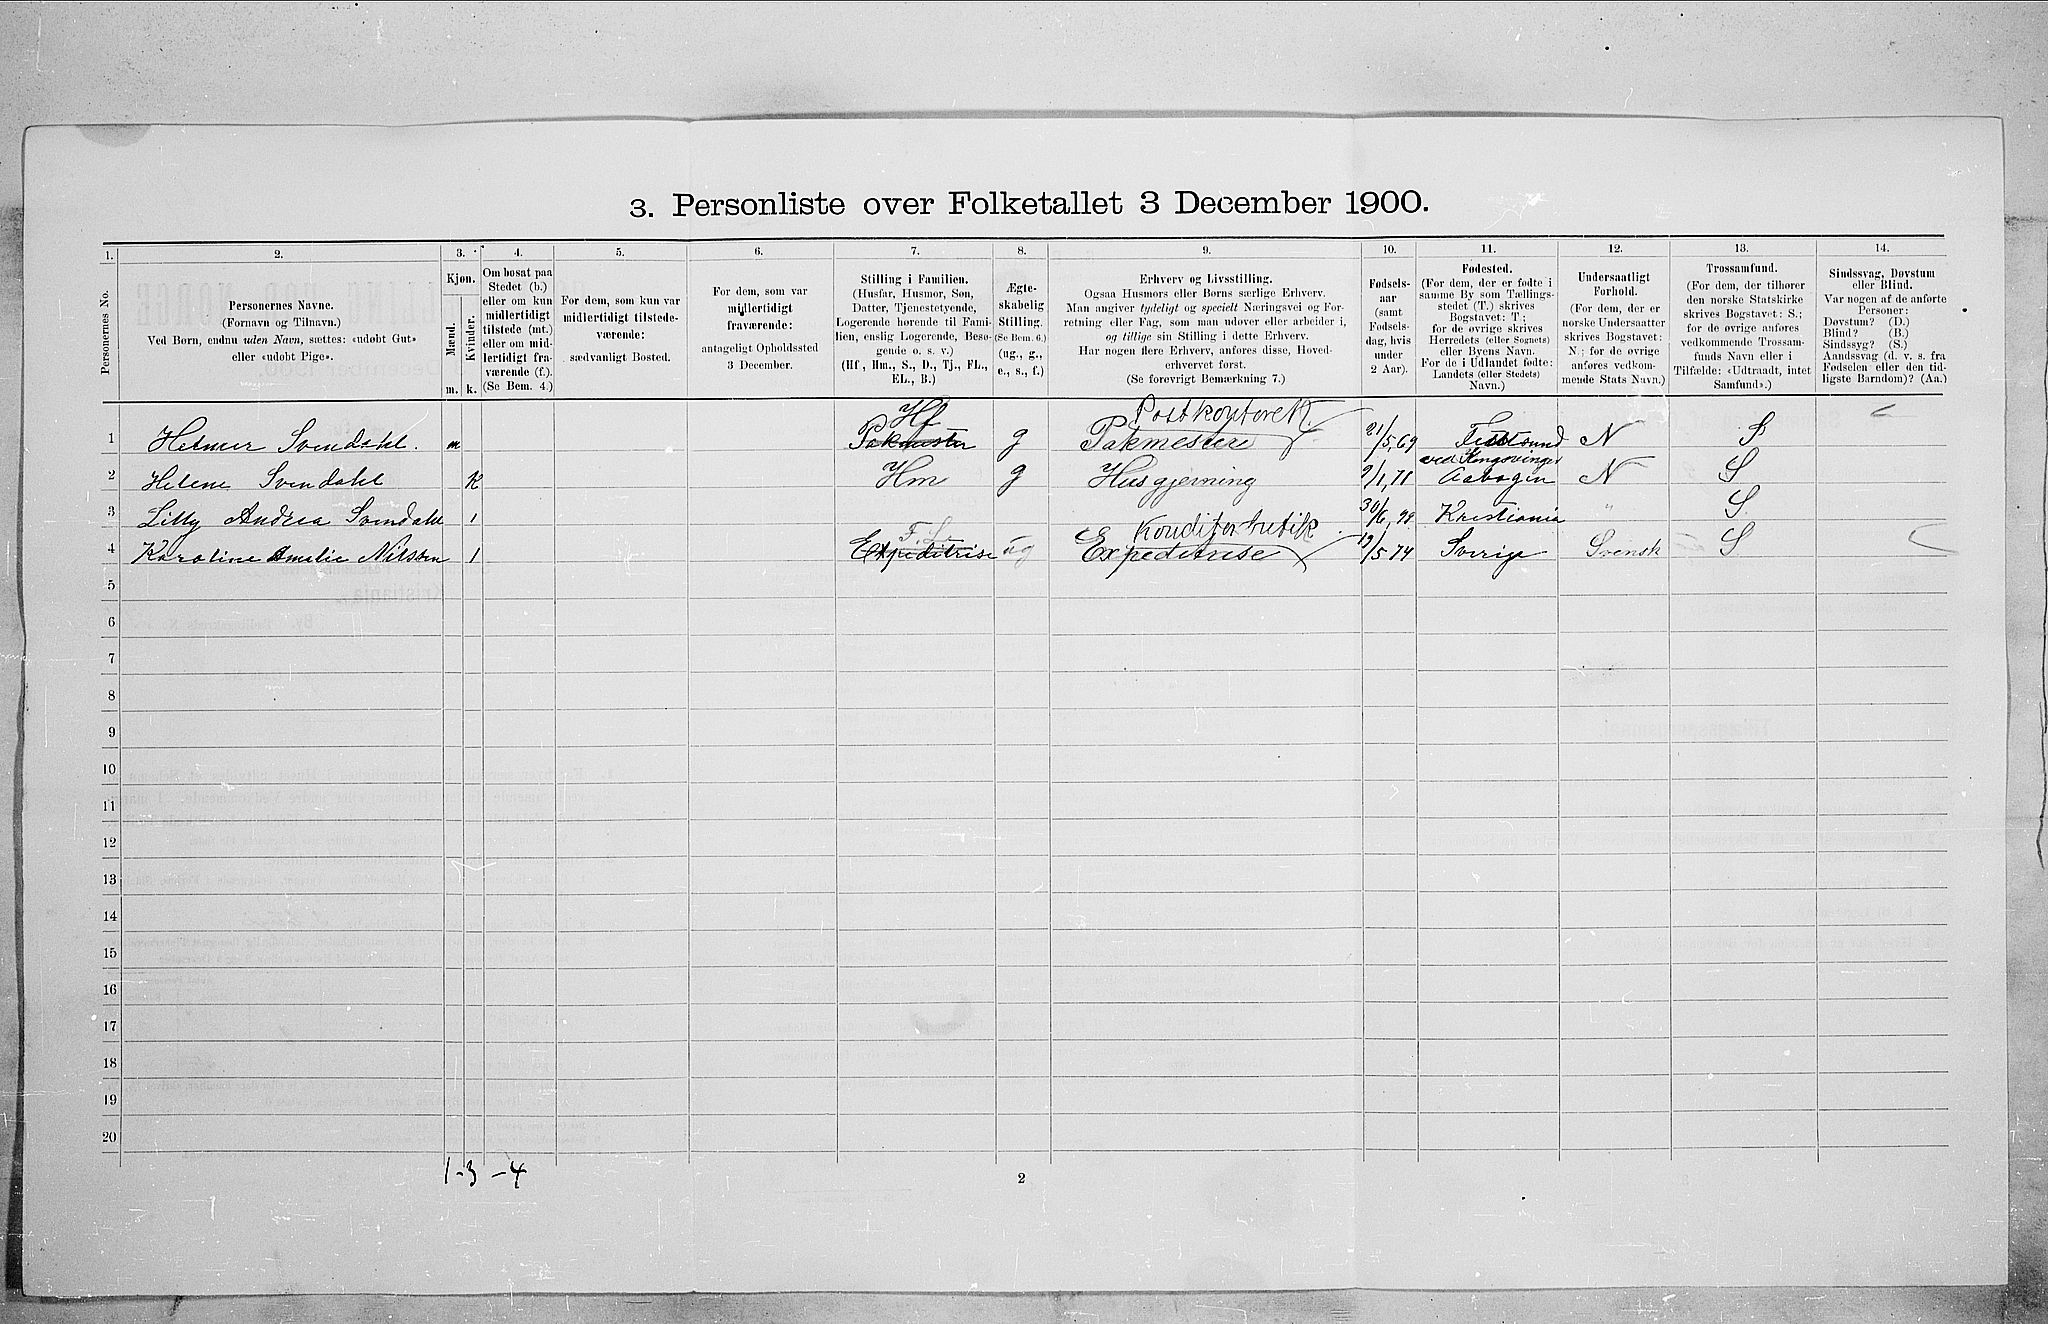 3. Personliste over Folketallet 3 December 1900.
1. 2. 3. 4. 5. 6. 7. 8. 9. 10. 11. 12. 13. 14.
Personernes No.
Personernes Navne.
(Fornavn og Tilnavn.)
Ved Børn, endnu uden Navn, sættes: «udøbt Gut»
eller «udøbt Pige».
Kjøn.
Mænd.
Kvinder.
m. k.
Om bosat paa
Stedet (b.)
eller om kun
midlertidigt
tilstede (mt.)
eller om mid-
lertidigt fra-
værende (f.).
(Se Bem. 4.)
For dem, som kun var
midlertidigt tilstede-
værende:
sædvanligt Bosted.
For dem, som var
midlertidigt
fraværende:
antageligt Opholdssted
3 December.
Stilling i Familien.
(Husfar, Husmor, Søn,
Datter, Tjenestetyende,
Logerende hørende til Fami-
lien, enslig Logerende, Besø-
gende o. s. v.)
(Hf, Hm., S., D., Tj., FL.,
EL., B.)
Ægte-
skabelig
Stilling.
(Se Bem. 6.)
(ug., g.,
e., s., f.)
Erhverv og Livsstilling.
Ogsaa Husmors eller Børns særlige Erhverv.
Man angiver tydeligt og specielt Næringsvei og For-
retning eller Fag, som man udøver eller arbeider i,
og tillige sin Stilling i dette Erhverv.
Har nogen flere Erhverv, anføres disse, Hoved-
erhvervet først.
(Se forøvrigt Bemærkning 7.)
Fødsels-
aar
(samt
Fødsels-
dag, hvis
under
2 Aar).
Fødested.
(For dem, der er fødte i
samme By som Tællings-
stedet (T.) skrives
Bogstavet: T.;
for de øvrige skrives
Herredets (eller Sognets)
eller Byens Navn.
For de i Udlandet fødte:
Landets (eller Stedets)
Navn.)
Undersaatligt
Forhold.
(For dem, der er
norske Undersaatter
skrives Bogstavet:
N.; for de øvrige
anføres vedkom-
mende Stats Navn.)
Trossamfund.
(For dem, der tilhører
den norske Statskirke
skrives Bogstavet: S.;
for de øvrige anføres
vedkommende Trossam-
funds Navn eller i
Tilfælde: «Udtraadt, intet
Samfund».)
Sindssvag, Døvstum
eller Blind.
Var nogen af de anførte
Personer:
Døvstum? (D.)
Blind? (B.)
Sindssyg? (S.)
Aandssvag (d. v. s. fra
Fødselen eller den tid-
ligste Barndom)? (Aa.)
Hf Postkontoret
1 Helmer Svendahl. m Pakmester g Pakmester 21/5, 69 N S
ved Kongsvinger
2 Helene Svendahl K Hm g Husgjerning 9/1, 71 Aabogen N S
3 Lilly Andrea Svendahl 1 30/6, 98 Kristiania " S
F.L. Konditorbutik
4 Karoline Amelie Nilssen 1 Expeditrise ug Expeditrise 19/5 74 Sverige Svensk S
5
6
7
8
9
10
11
12
13
14
15
16
17
18
19
20
1-3 -4
2